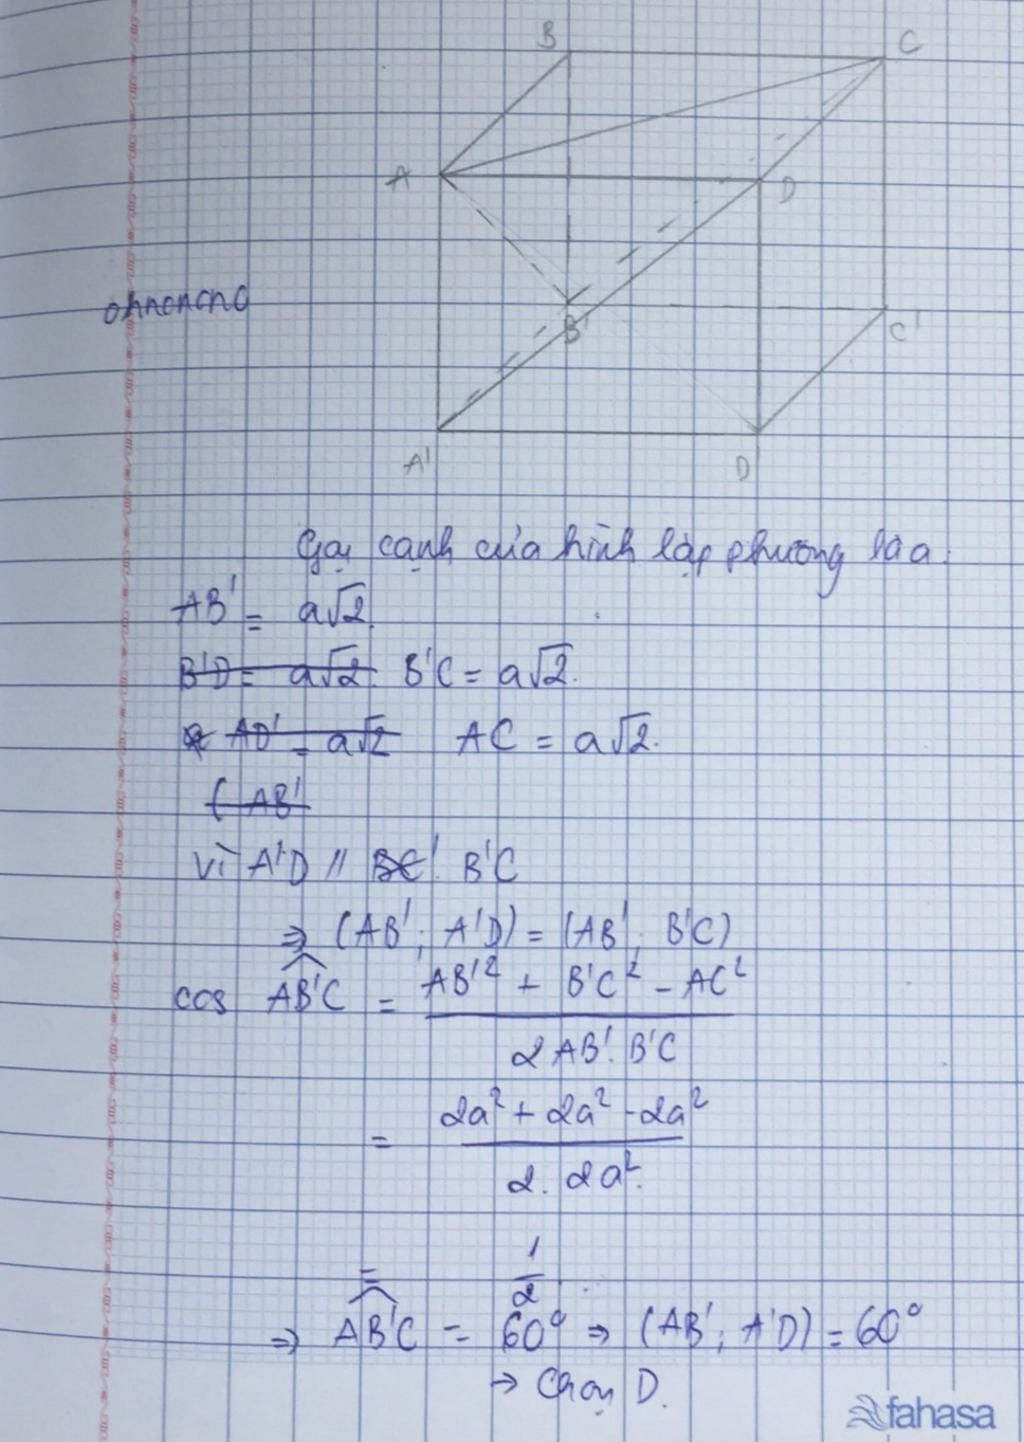 B
C
A
D
B'
C'
A'
D'
Gọi cạnh của hình lập phương là a.
AB' = a√2.
B'D = a√2. B'C = a√2.
AD' = a√2 AC = a√2.
( AB'
Vì A'D // BC' B'C
⇒ (AB'; A'D) = (AB'; B'C)
cos AB'C = AB'² + B'C² - AC²
2AB'. B'C
= 2a² + 2a² - 2a²
2. 2a².
= 1
2
⇒ AB'C = 60° ⇒ (AB'; A'D) = 60°
→ Chọn D.
fahasa